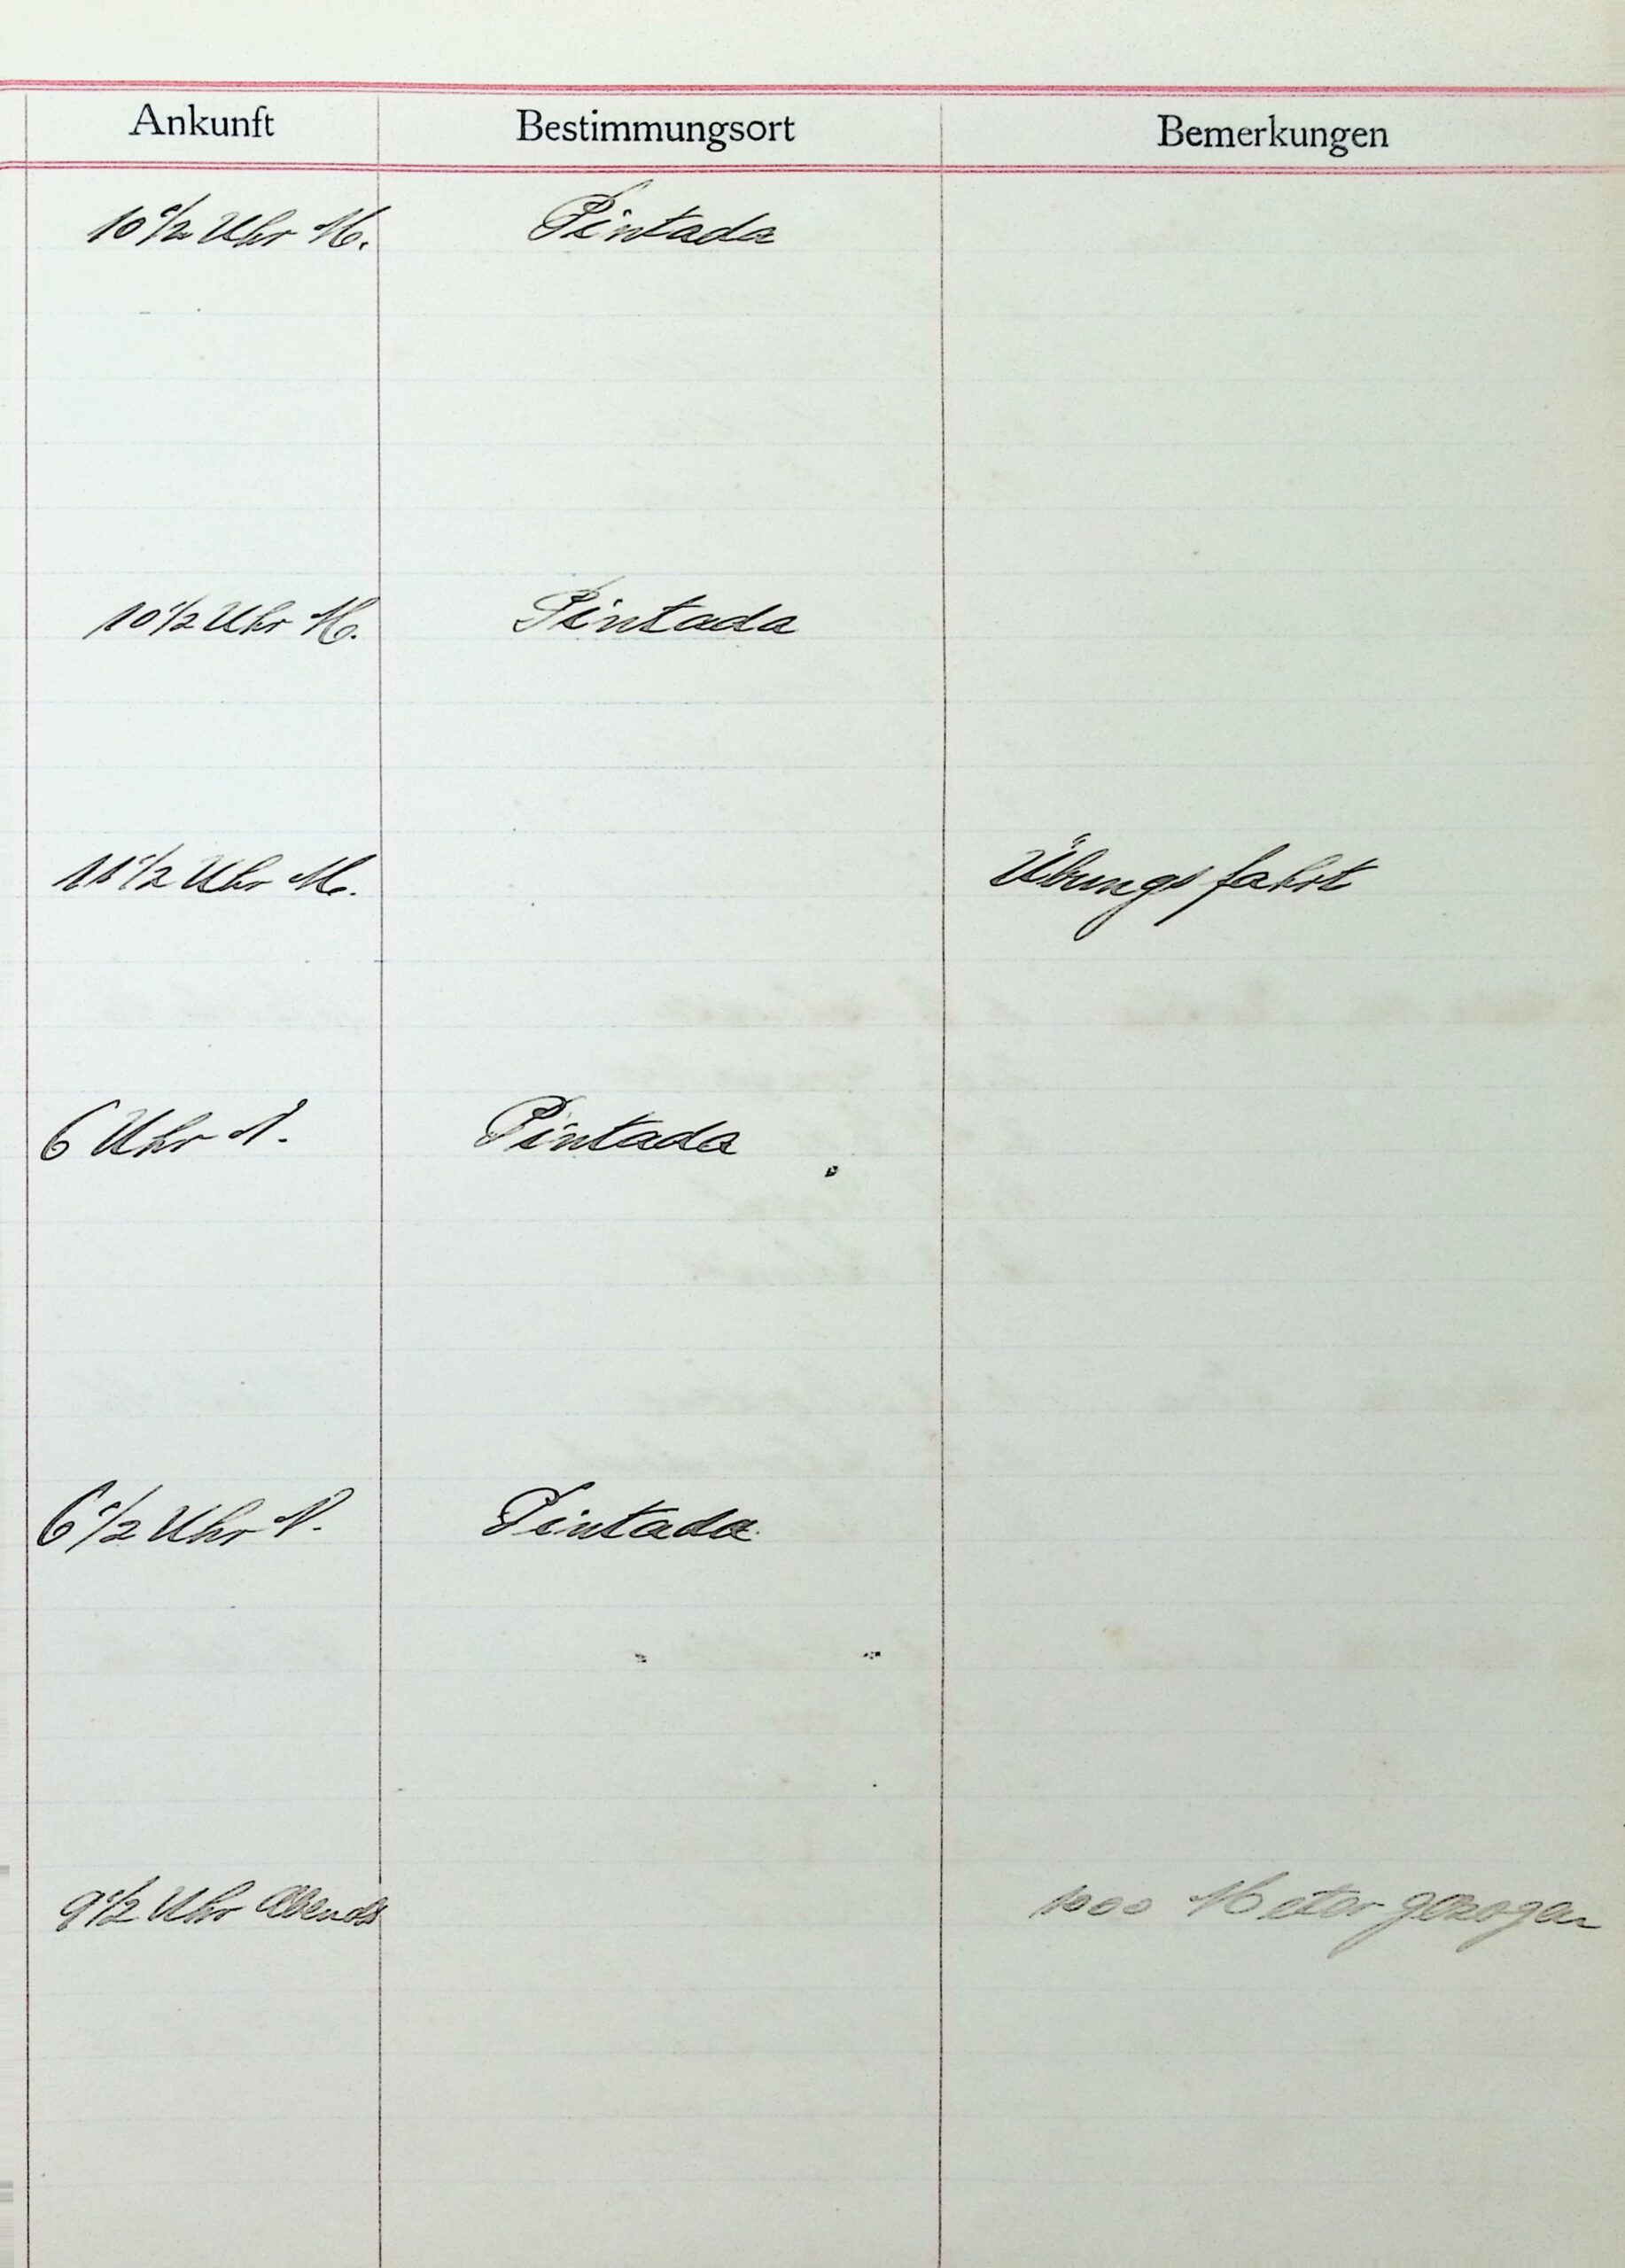 Ankunft Bestimmungsort Bemerkungen
10 1/2 Uhr M. Pintada
10 1/2 Uhr M. Pintada
11 1/2 Uhr M. Übungsfahrt
6 Uhr N. Pintada
6 1/2 Uhr N. Pintada
9 1/2 Uhr Abends 1000 Meter gezogen